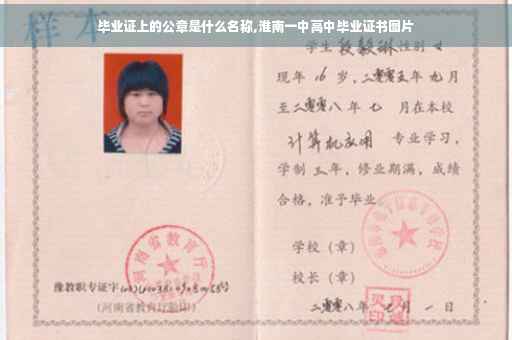 毕业证上的公章是什么名称,淮南一中高中毕业证书图片
样本
学生 段毅琳 性别 女
现年 16 岁,二零零五年 九月
至二零零八年 七 月在本校
计算机应用 专业学习,
学制 三 年,修业期满,成绩
合格,准予毕业
学校(章)
校长(章)
河南省教育厅
豫教职专证字
(河南省教育厅验印)
二零零八年 月 一 日